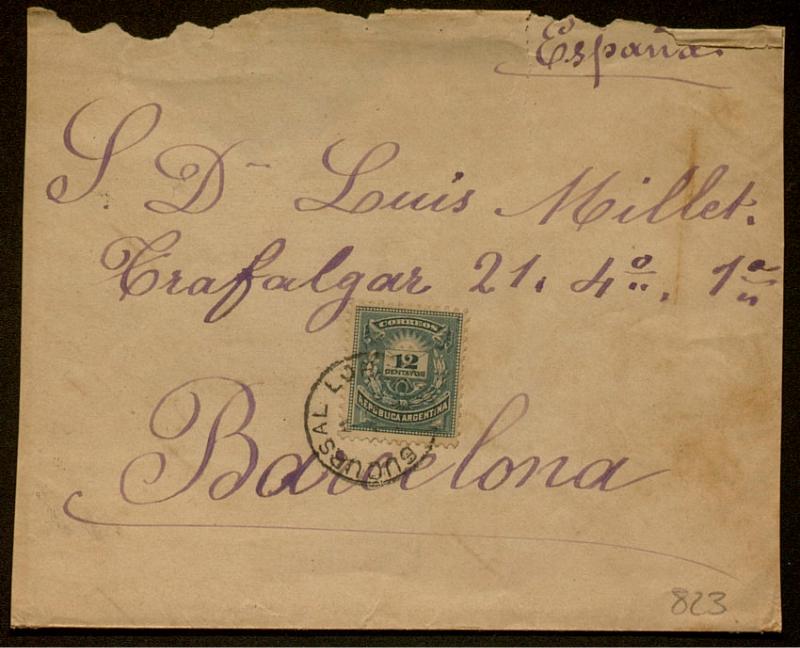 España.
S. Dn Luis Millet.
Trafalgar 21. 4º. 1ª
CORREOS
12
CENTAVOS
REPUBLICA ARGENTINA
SUCURSAL
Barcelona
823